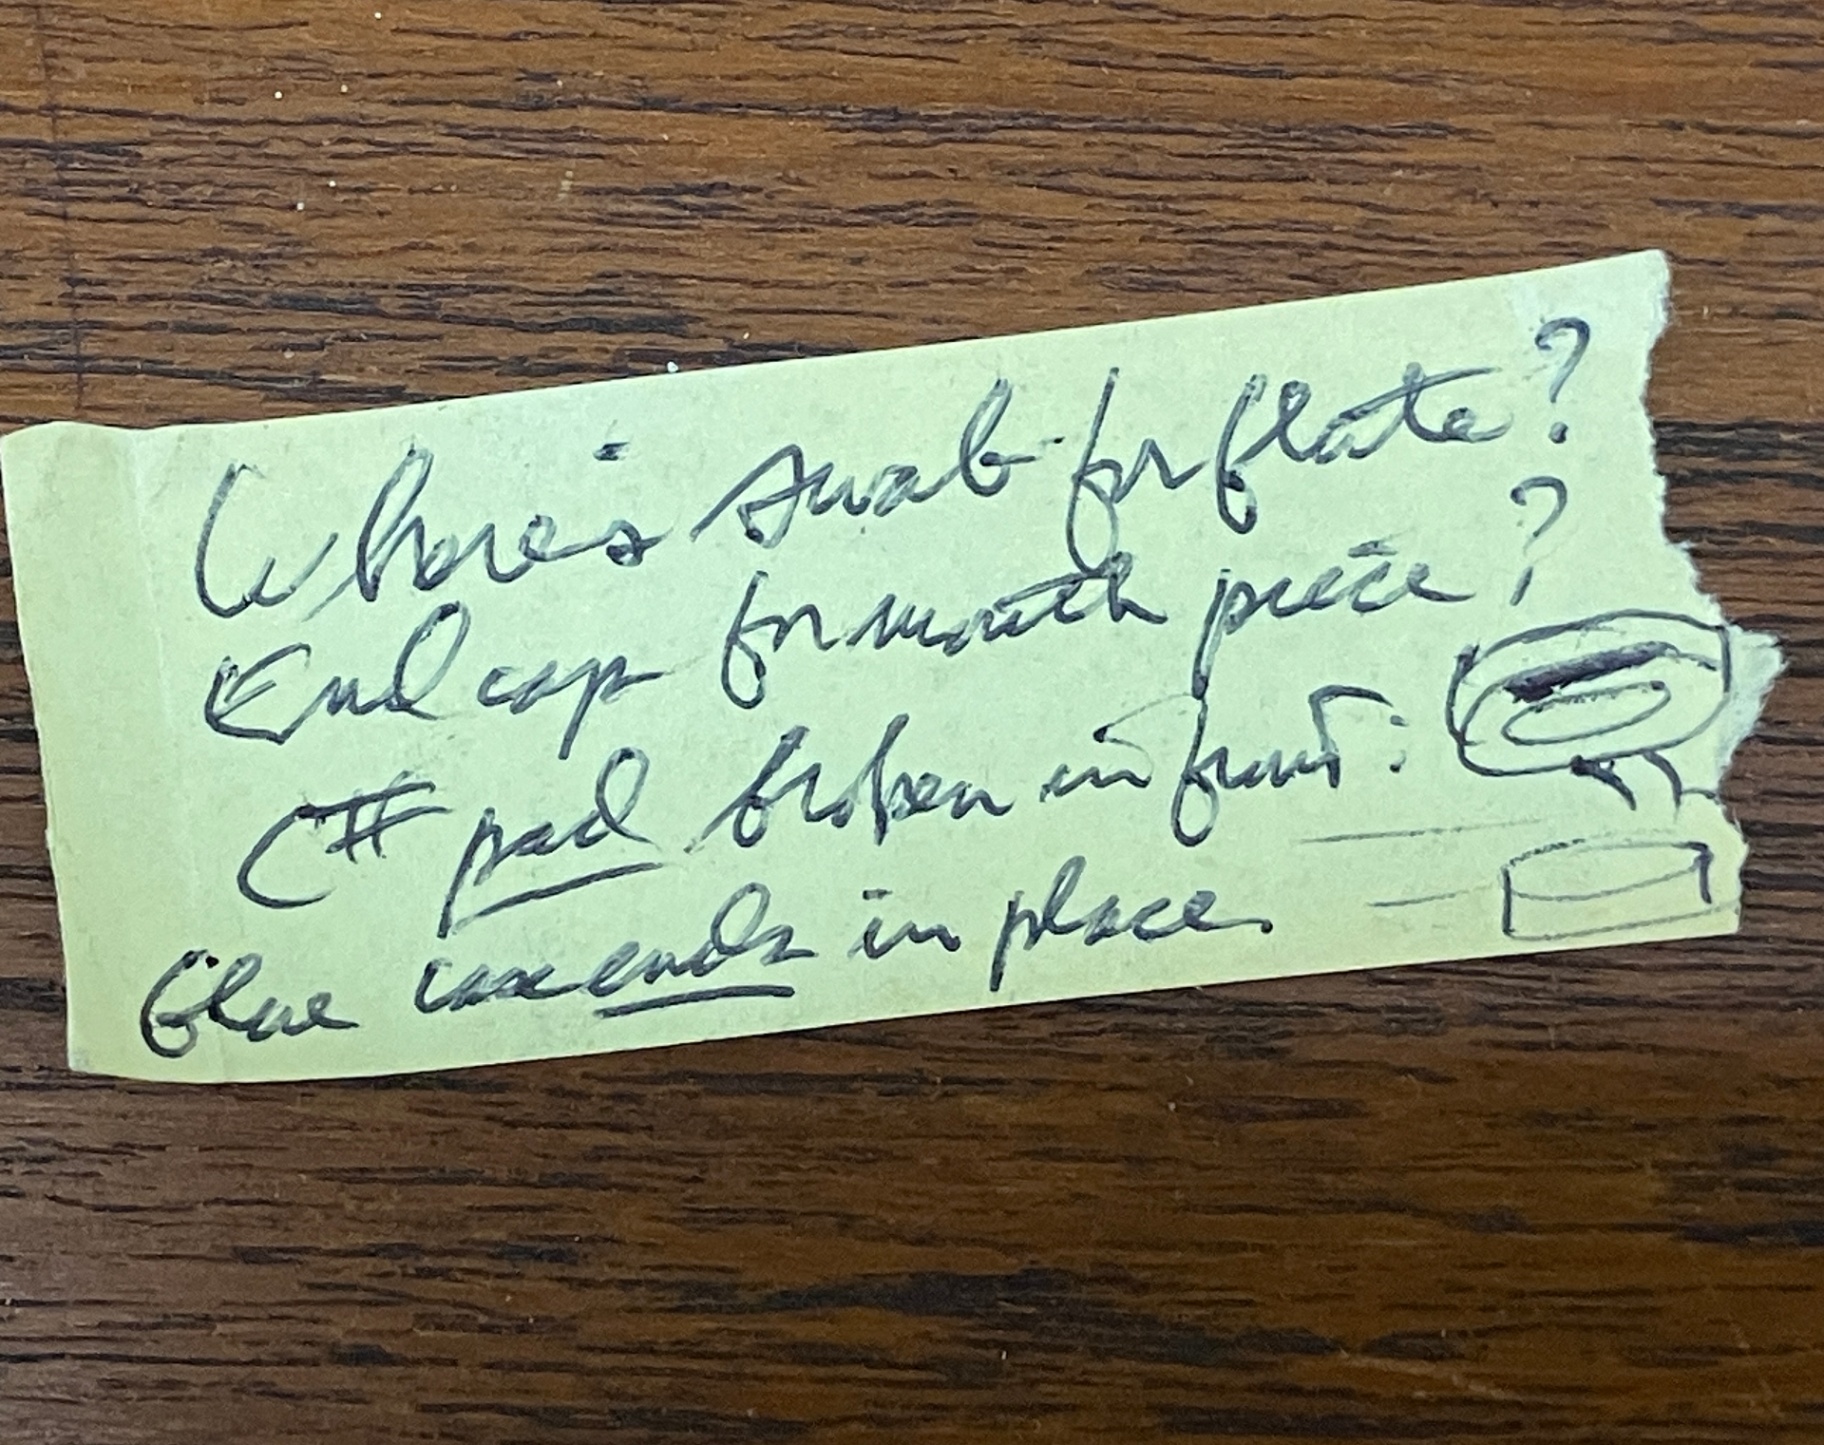 Where's swab for flute?
End cap for mouth piece?
C# pad broken in front:
Glue case ends in place.